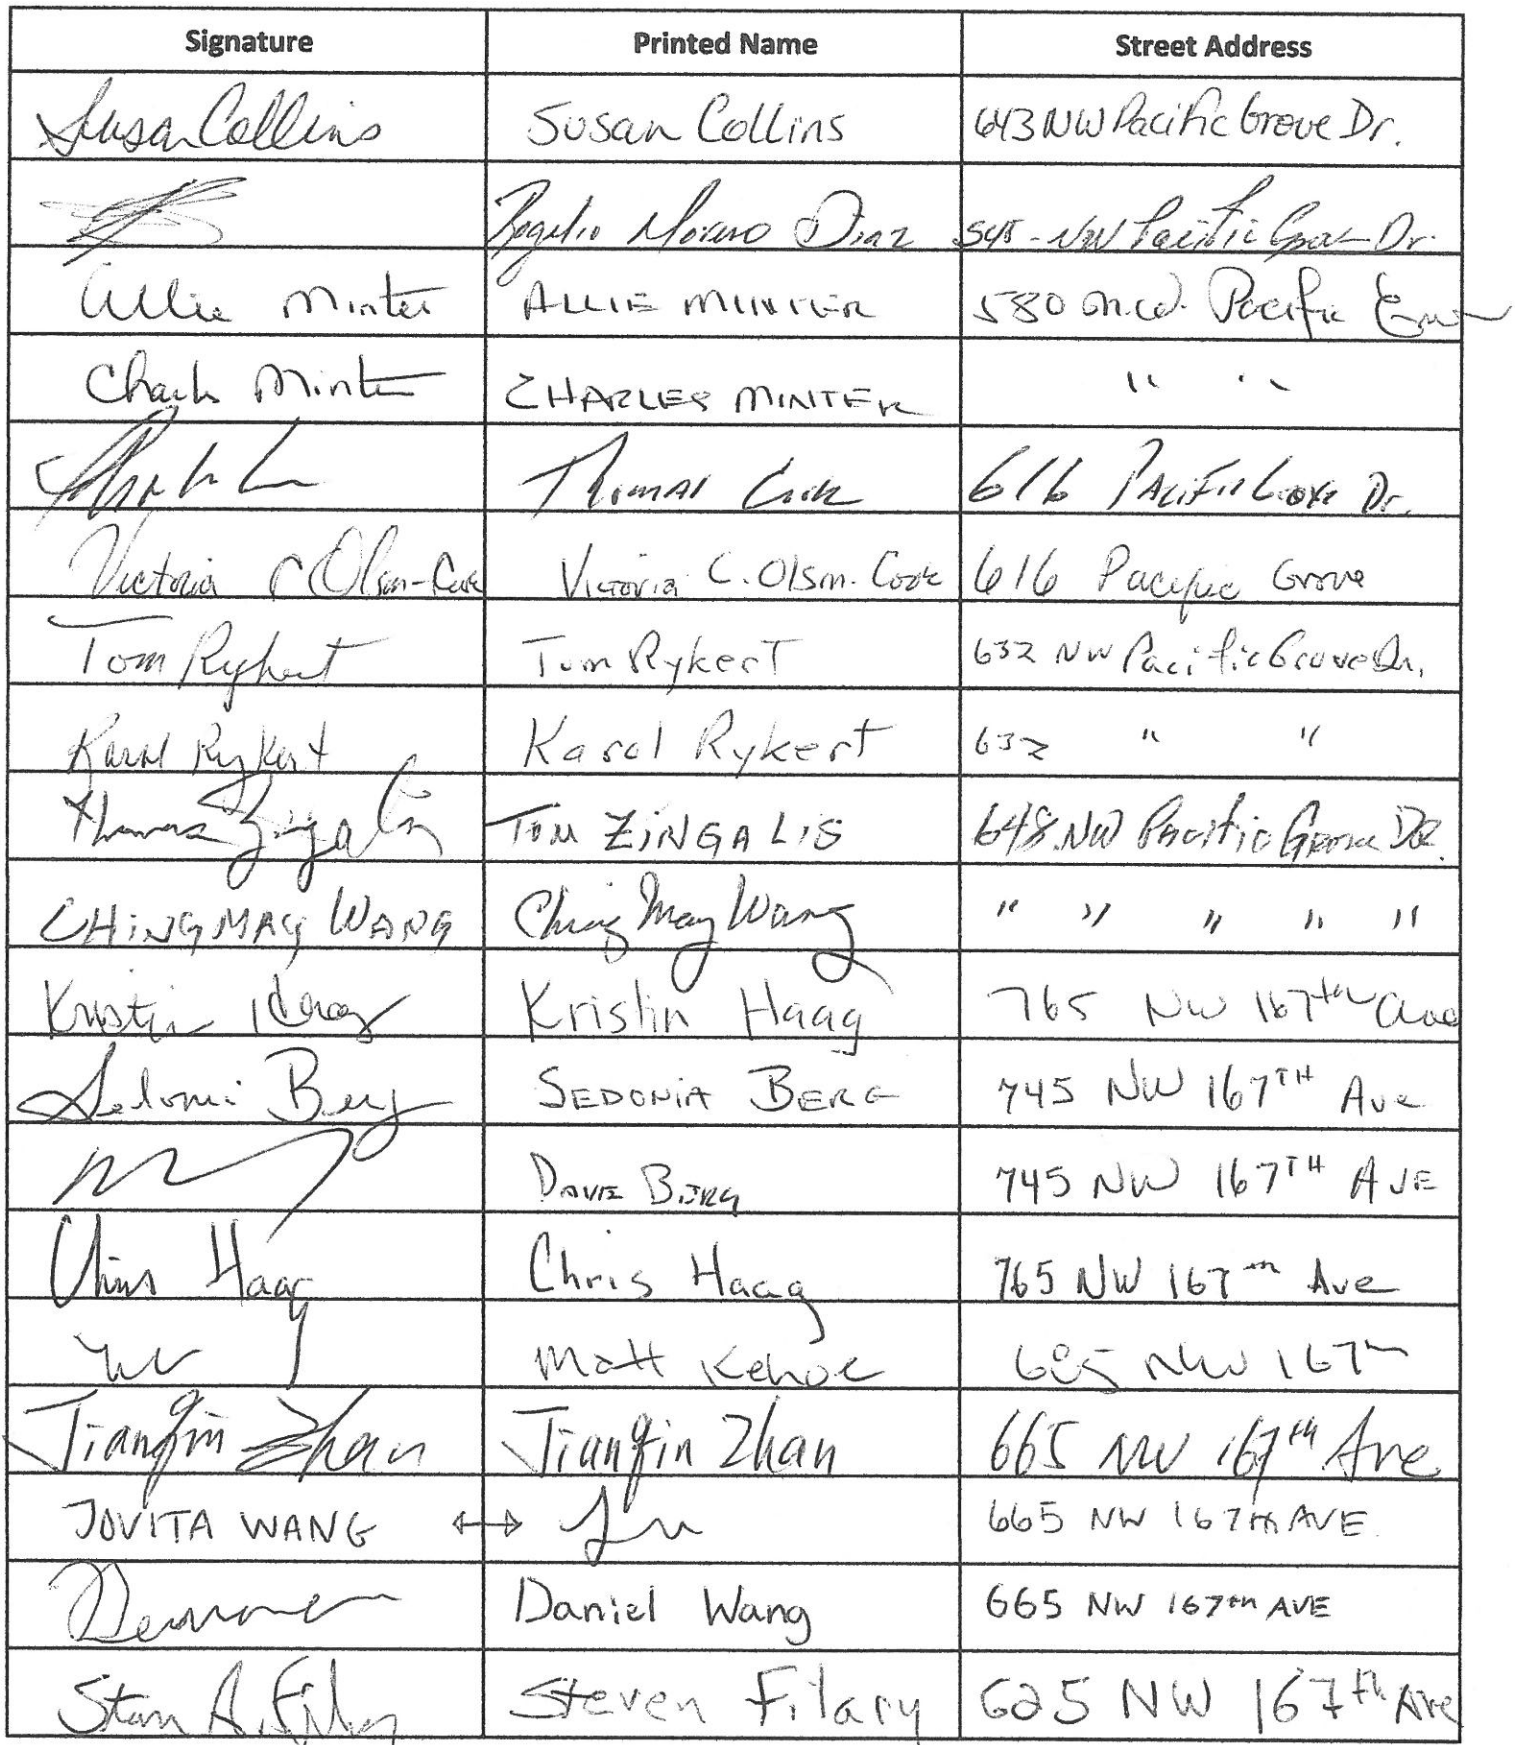 Signature Printed Name Street Address
Susan Collins Susan Collins 643 NW Pacific Grove Dr.
Rogelio Moreno Diaz 545 - NW Pacific Grove Dr.
Allie Minter ALLIE MINTER 580 N.W. Pacific
Charles Minter CHARLES MINTER " "
Thomas Cook 616 Pacific Grove Dr.
Victoria C Olson-Cook Victoria C. Olson-Cook 616 Pacific Grove
Tom Rykert Tom Rykert 632 NW Pacific Grove Dr.
Karol Rykert Karol Rykert 632 " "
Thomas Zingalis TOM ZINGALIS 648 NW Pacific Grove DR.
CHING MAY WANG Ching May Wang " " " " "
Kristin Haag Kristin Haag 765 NW 167th Ave
Sedonia Berg SEDONIA BERG 745 NW 167TH Ave
DAVE BERG 745 NW 167TH AVE
Chris Haag Chris Haag 765 NW 167th Ave
Matt Kehoe 685 NW 167th
Jianqin Zhan Jianqin Zhan 665 NW 167th Ave
JOVITA WANG ↔ 665 NW 167th AVE
Daniel Wang 665 NW 167th AVE
Steven Filary 625 NW 167th Ave